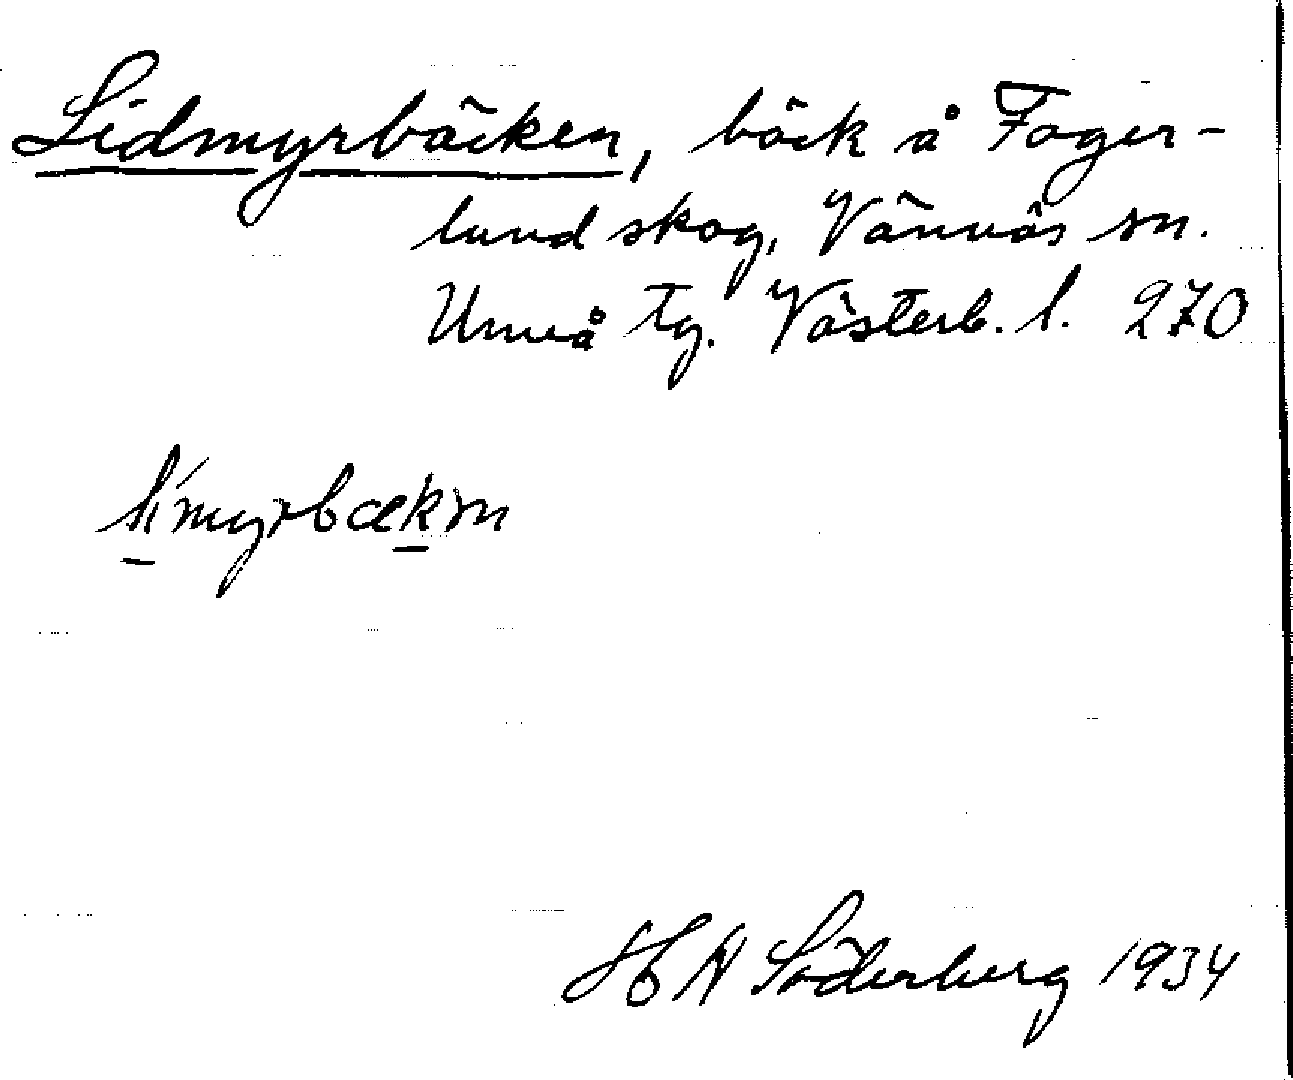 Lidmyrbäcken, bäck å Fager-
lund skog, Vännäs sn.
Umeå tg. Västerb. l. 270
li´myrbækm
H N Söderberg 1934